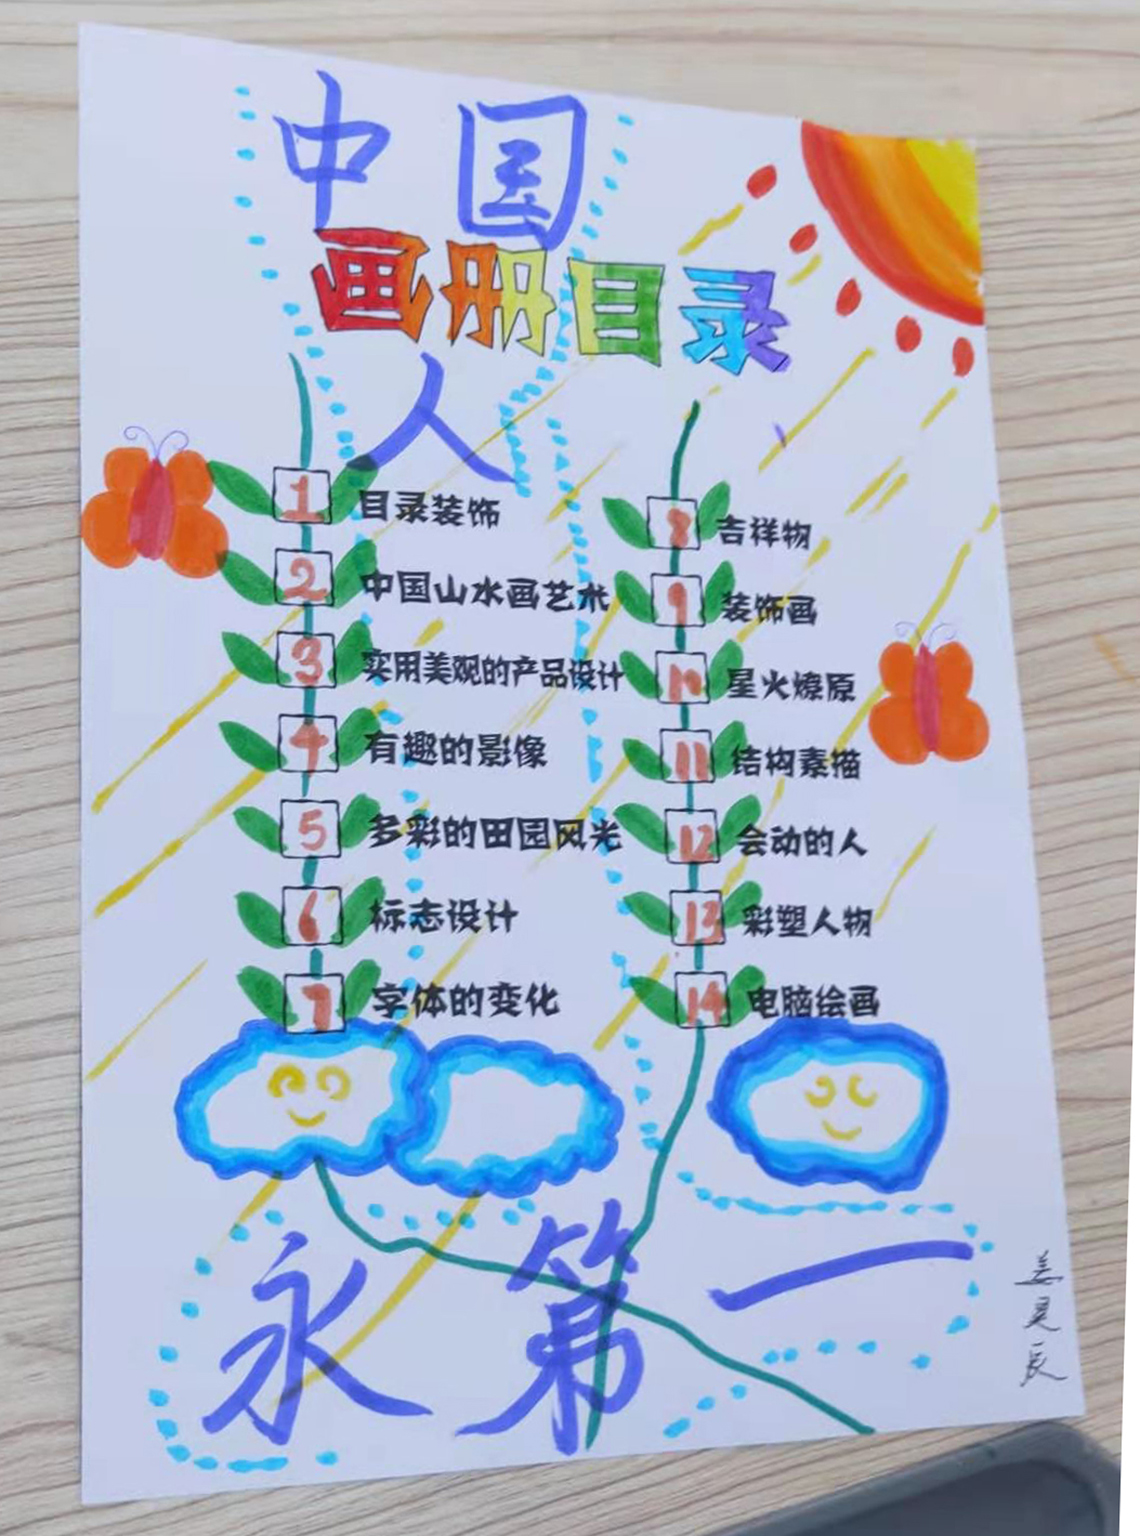 中国
画册目录
人
1 目录装饰
2 中国山水画艺术
3 实用美观的产品设计
4 有趣的影像
5 多彩的田园风光
6 标志设计
7 字体的变化
8 吉祥物
9 装饰画
10 星火燎原
11 结构素描
12 会动的人
13 彩塑人物
14 电脑绘画
永第一